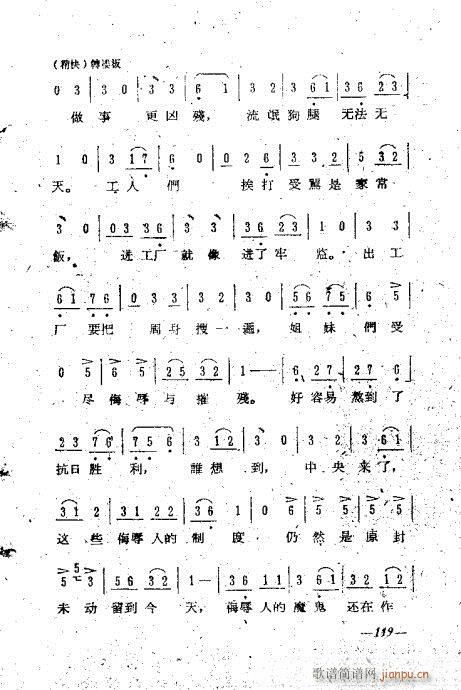 （稍快）轉楼板
0 3 | 3 0 | 3 3 | 6 1 | 3 2 | 3 6 1 | 3 6 2 3 |
做事 更凶殘， 流氓狗腿 无法无
1 0 | 3 1 7 | 6 0 | 0 2 6 | 3 3 | 0 5 | 5 3 2 |
天。 工人們 挨打受駡是家常
3 0 | 0 3 3 6 | 3 3 | 3 3 | 3 6 2 3 | 1 0 | 3 3 |
飯， 进工厂就像 进了牢 监。 出工
6 1 7 6 | 0 3 3 3 | 6 1 2 | 3 0 | 5 6 7 5 | 6 5 |
厂 要把 周身搜一遍， 姐妹們受
0 5 | 6 5 | 2 5 3 2 | 1 — | 6 2 7 | 2 7 6 |
尽侮辱与摧 殘。 好容易熬到了
2 3 7 6 | 7 5 6 | 3 1 2 | 3 0 | 2 3 | 3 6 1 |
抗日胜利， 誰想到， 中央来了，
3 1 2 | 3 1 2 1 | 6 1 2 3 | 1 0 | 5 5 | 5 5 |
这些侮辱人的制 度 仍然是原封
5 5 3 | 5 6 3 2 | 1 — | 3 6 1 1 | 3 6 1 | 3 2 1 2 |
未动留到今 天， 侮辱人的魔鬼 还在作
—119—
歌谱简谱网
jianpu.cn